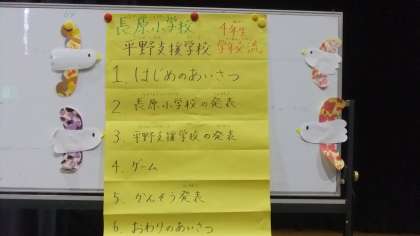 長原小学校 4年生
平野支援学校 学校交流
1 はじめのあいさつ
2 長原小学校の発表
3 平野支援学校の発表
4 ゲーム
5 かんそう発表
6 おわりのあいさつ